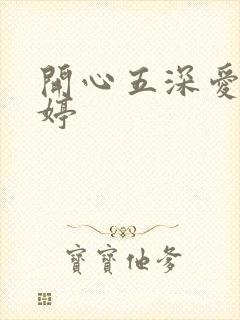 開心五深愛
婷
寶寶他爹